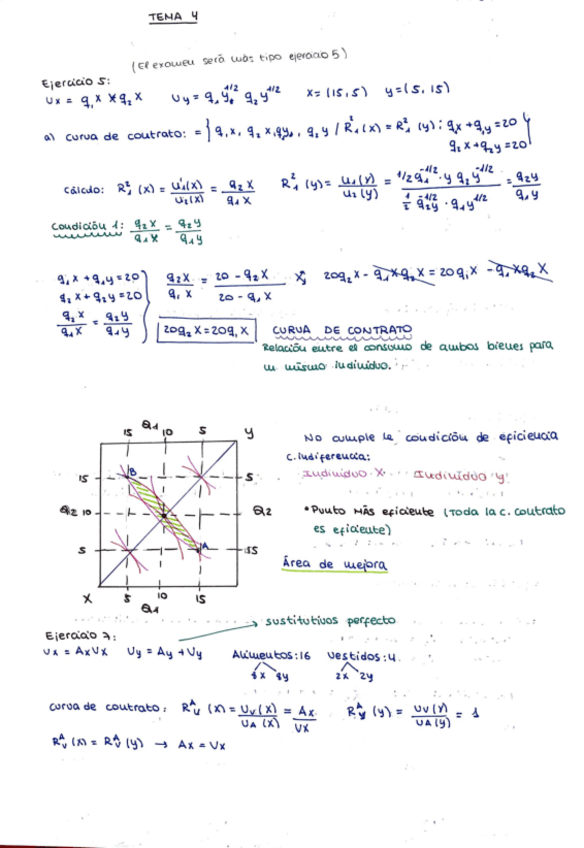 TEMA 4
(El examen será más tipo ejercicio 5)
Ejercicio 5:
Ux = q₁x * q₂x   Uy = q₁y^1/2 q₂y^1/2   x=(15,5)   y=(5,15)
a) curva de contrato: = { q₁x, q₂x, q₁y, q₂y / R₁²(x) = R₁²(y); q₁x + q₁y = 20
q₂x + q₂y = 20 }
Cálculo: R₁²(x) = U₁(x)/U₂(x) = q₂x/q₁x   R₁²(y) = U₁(y)/U₂(y) = 1/2 q₁^-1/2 y q₂y^1/2 / 1/2 q₂y^-1/2 · q₁y^1/2 = q₂y/q₁y
Condición 1: q₂x/q₁x = q₂y/q₁y
q₁x + q₁y = 20
q₂x + q₂y = 20
q₂x/q₁x = q₂y/q₁y
q₂x/q₁x = 20 - q₂x / 20 - q₁x   20q₂x - q₁xq₂x = 20q₁x - q₁xq₂x
20q₂x = 20q₁x   CURVA DE CONTRATO
Relación entre el consumo de ambos bienes para
un mismo individuo.
15 Q₁ 10 5 y
15 B 5
Q₂ 10 Q₂
5 A 15
x 5 10 15
Q₁
No cumple la condición de eficiencia
C. indiferencia:
individuo X   individuo Y
*Punto más eficiente (Toda la c. contrato
es eficiente)
Área de mejora
sustitutivos perfecto
Ejercicio 7:
Ux = AxVx   Uy = Ay + Vy   Alimentos: 16   Vestidos: 4
8x 8y   2x 2y
curva de contrato: (x) = Uv(x)/UA(x) = Ax/Vx   (y) = Uv(y)/UA(y) = 1
(x) = (y) → Ax = Vx